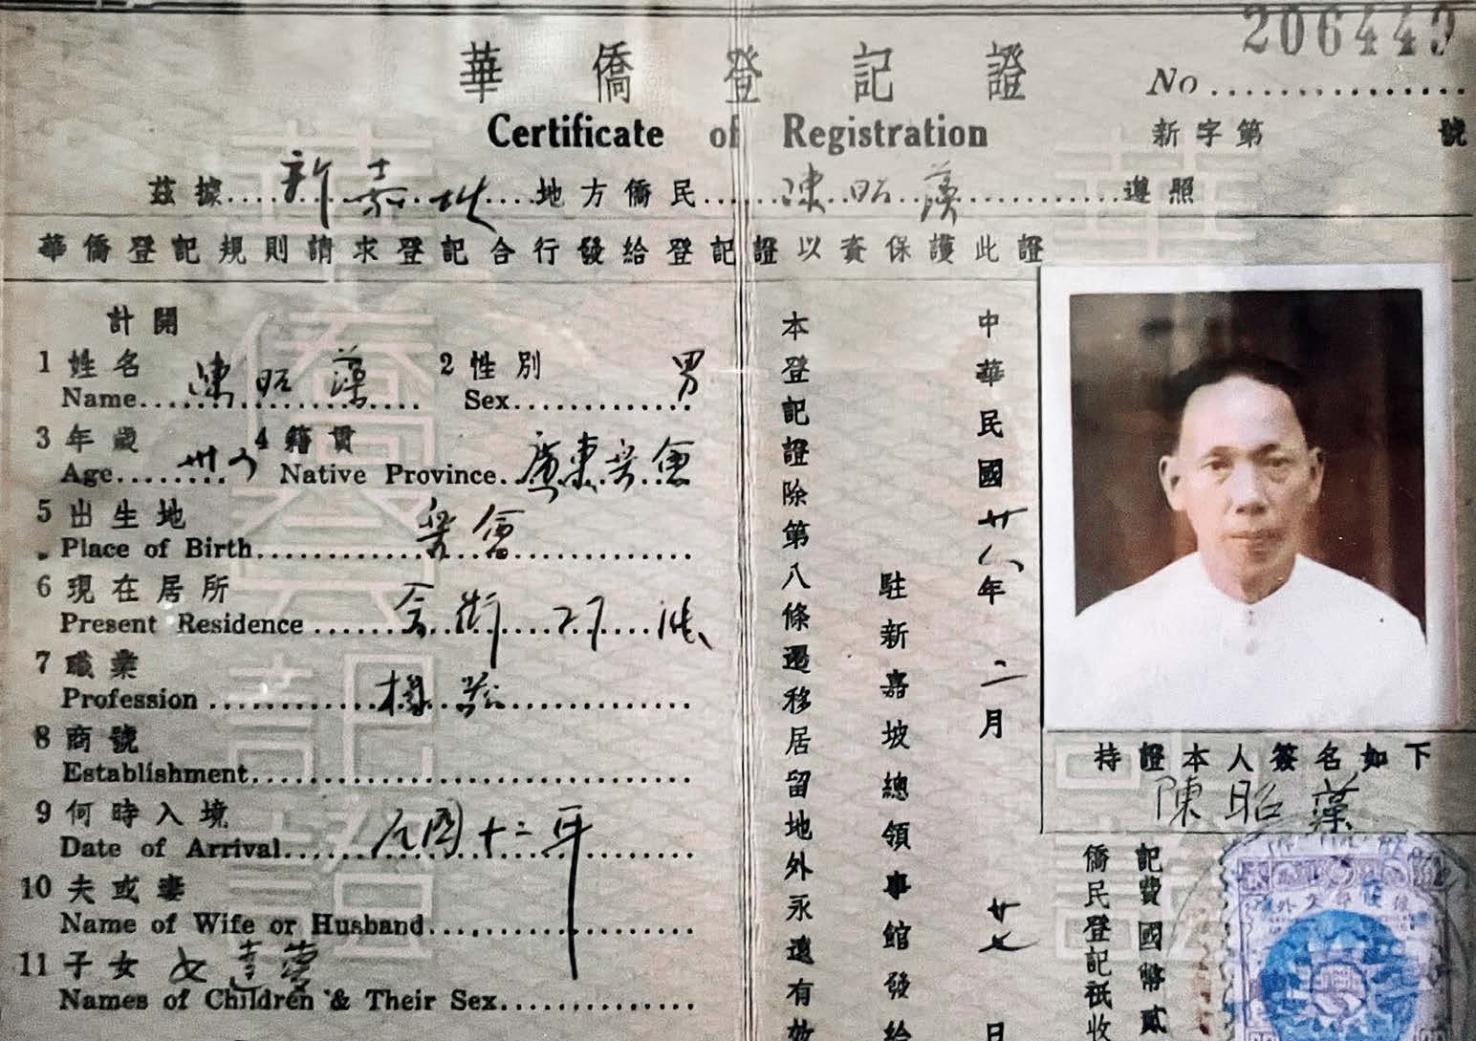 206449
華僑登記證
No
Certificate of Registration
新字第 號
茲據 新嘉坡 地方僑民 陳昭藻 遵照
華僑登記規則請求登記合行發給登記證以資保護此證
計開
1 姓名 陳昭藻 2 性別 男
Name Sex
3 年歲 4 籍貫 廣東
Age Native Province
5 出生地
Place of Birth
6 現在居所
Present Residence
7 職業
Profession
8 商號
Establishment
9 何時入境 民國十二年
Date of Arrival
10 夫或妻
Name of Wife or Husband
11 子女 女
Names of Children & Their Sex
本登記證除第八條遷移居留地外永遠有效
駐新嘉坡總領事館發給
中華民國廿八年二月廿七日
持證本人簽名如下
陳昭藻
記費國幣貳
僑民登記祇收